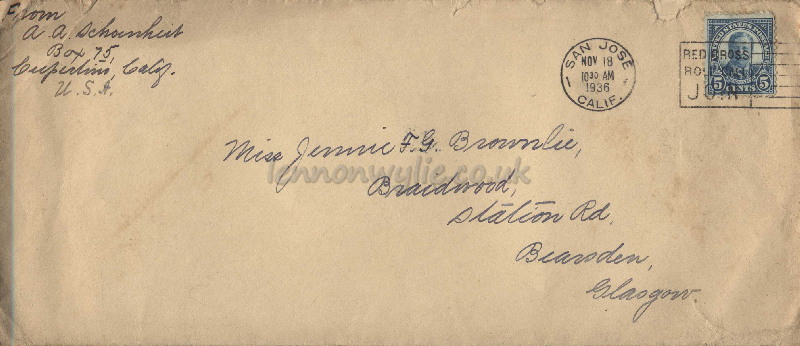 From
A. A. Schoenheit
Box 75,
Cupertino, Calif.
U.S.A.
SAN JOSE
NOV 18
10 30 AM
1936
CALIF.
UNITED STATES POSTAGE
5 CENTS 5
RED CROSS
ROLL CALL
JOIN
Miss Jennie F.G. Brownlie,
lennonwylie.co.uk
Braidwood,
Station Rd,
Bearsden,
Glasgow.